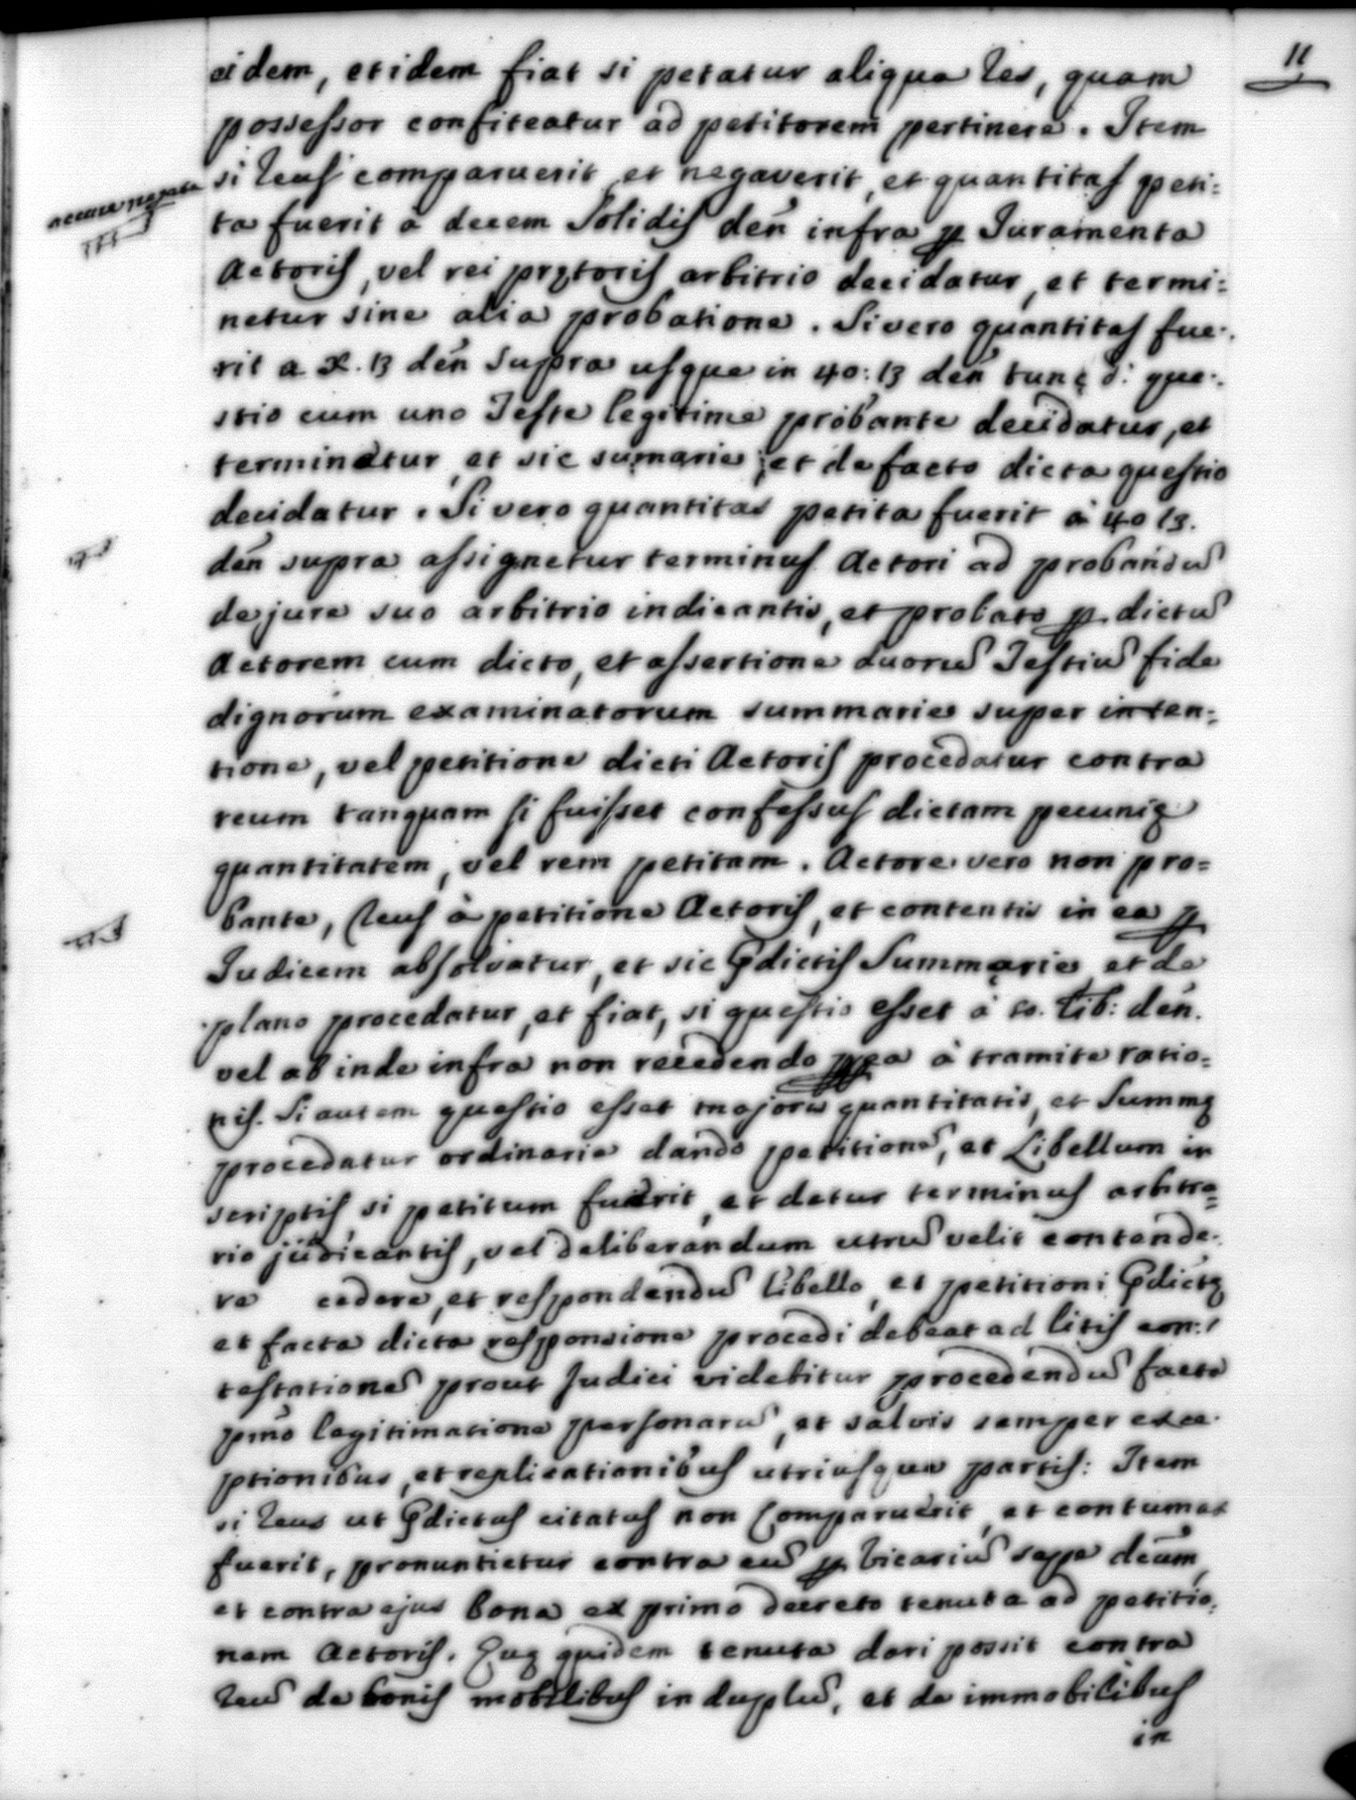 11
eidem, et idem fiat si petatur aliqua Res, quam
possessor confiteatur ad petitorem pertinere. Item
si Reus comparuerit, et negaverit, et quantitas peti:
ta fuerit à decem Solidis deñ infra p Juramenta
Actoris, vel rei prętoris arbitrio decidatur, et termi:
netur sine alia probatione. Si vero quantitas fue:
rit a X. ß deñ supra usque in 40: ß deñ tunc d: que:
stio cum uno Teste legitime probante decidatur, et
terminetur, et sic sumarie, et de facto dicta questio
decidatur. Si vero quantitas petita fuerit à 40 ß.
deñ supra assignetur terminus Actori ad probandū
de jure suo arbitrio indicantis, et probato p dictū
Actorem cum dicto, et assertione duorū Testiū fide
dignorum examinatorum summarie super inten:
tione, vel petitione dicti Actoris procedatur contra
reum tanquam si fuisset confessus dictam pecunię
quantitatem, vel rem petitam. Actore vero non pro=
bante, Reus à petitione Actoris, et contentis in ea p
Judicem absolvatur, et sic Pdictis Summarie et de
plano procedatur, et fiat, si questio esset à 10. Lib: deñ.
vel ab inde infra non recedendo pp ea à tramite ratio=
nis. Si autem questio esset majoris quantitatis, et Summę
procedatur ordinarie dando petitionē, et Libellum in
scriptis, si petitum fuerit, et detur terminus arbitra=
rio judicantis, vel deliberandum utrū velit contende:
re cedere, et respondendū Libello, et petitioni Pdictę
et facta dicta responsione procedi debeat ad litis con:
testationē prout Judici videbitur procedendū facta
pmō legitimatione personarū, et salvis semper exce:
ptionibus, et replicationibus utriusque partis: Item
si Reus ut Pdictus citatus non Comparuerit, et contumax
fuerit, pronuntietur contra eū p Vicariū sepe dcūm,
et contra ejus bona ex primo decreto tenuta ad petitio:
nem Actoris. Quę quidem tenuta dari possit contra
Reū de bonis mobilibus in duplū, et de immobilibus
in